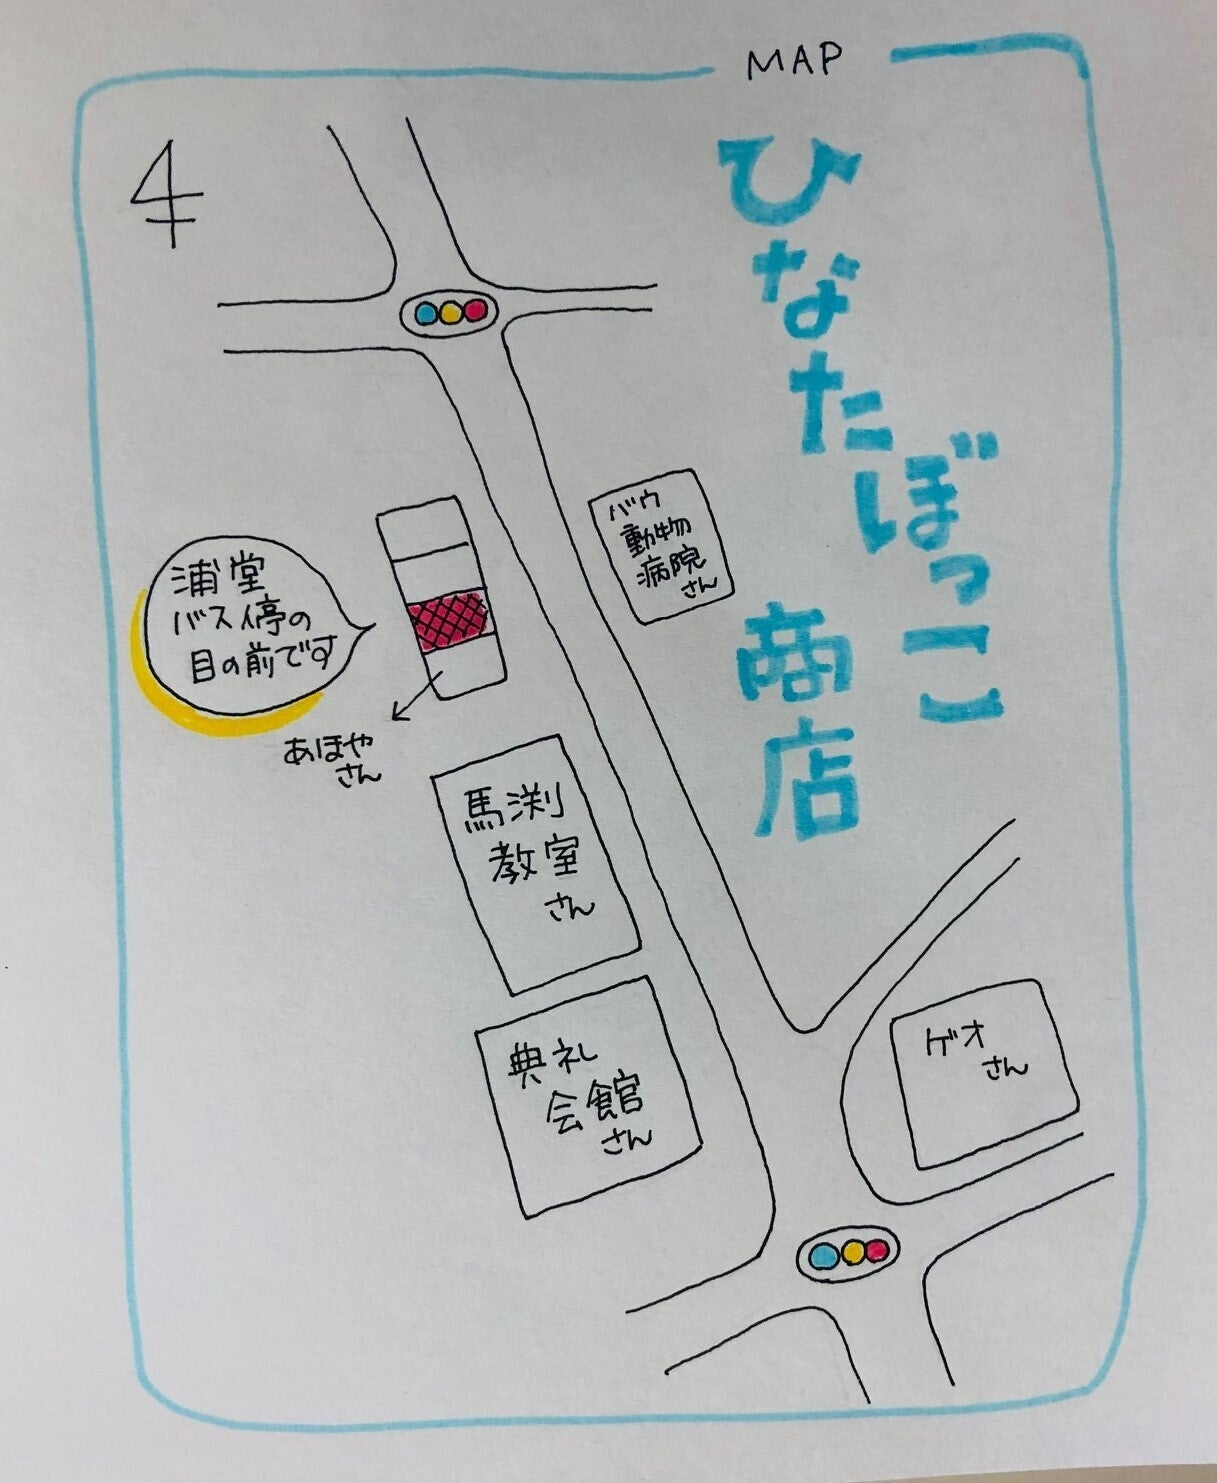 MAP
ひなたぼっこ
商店
バウ
動物
病院
さん
浦堂
バス停の
目の前です
あほや
さん
馬渕
教室
さん
典礼
会館
さん
ゲオ
さん